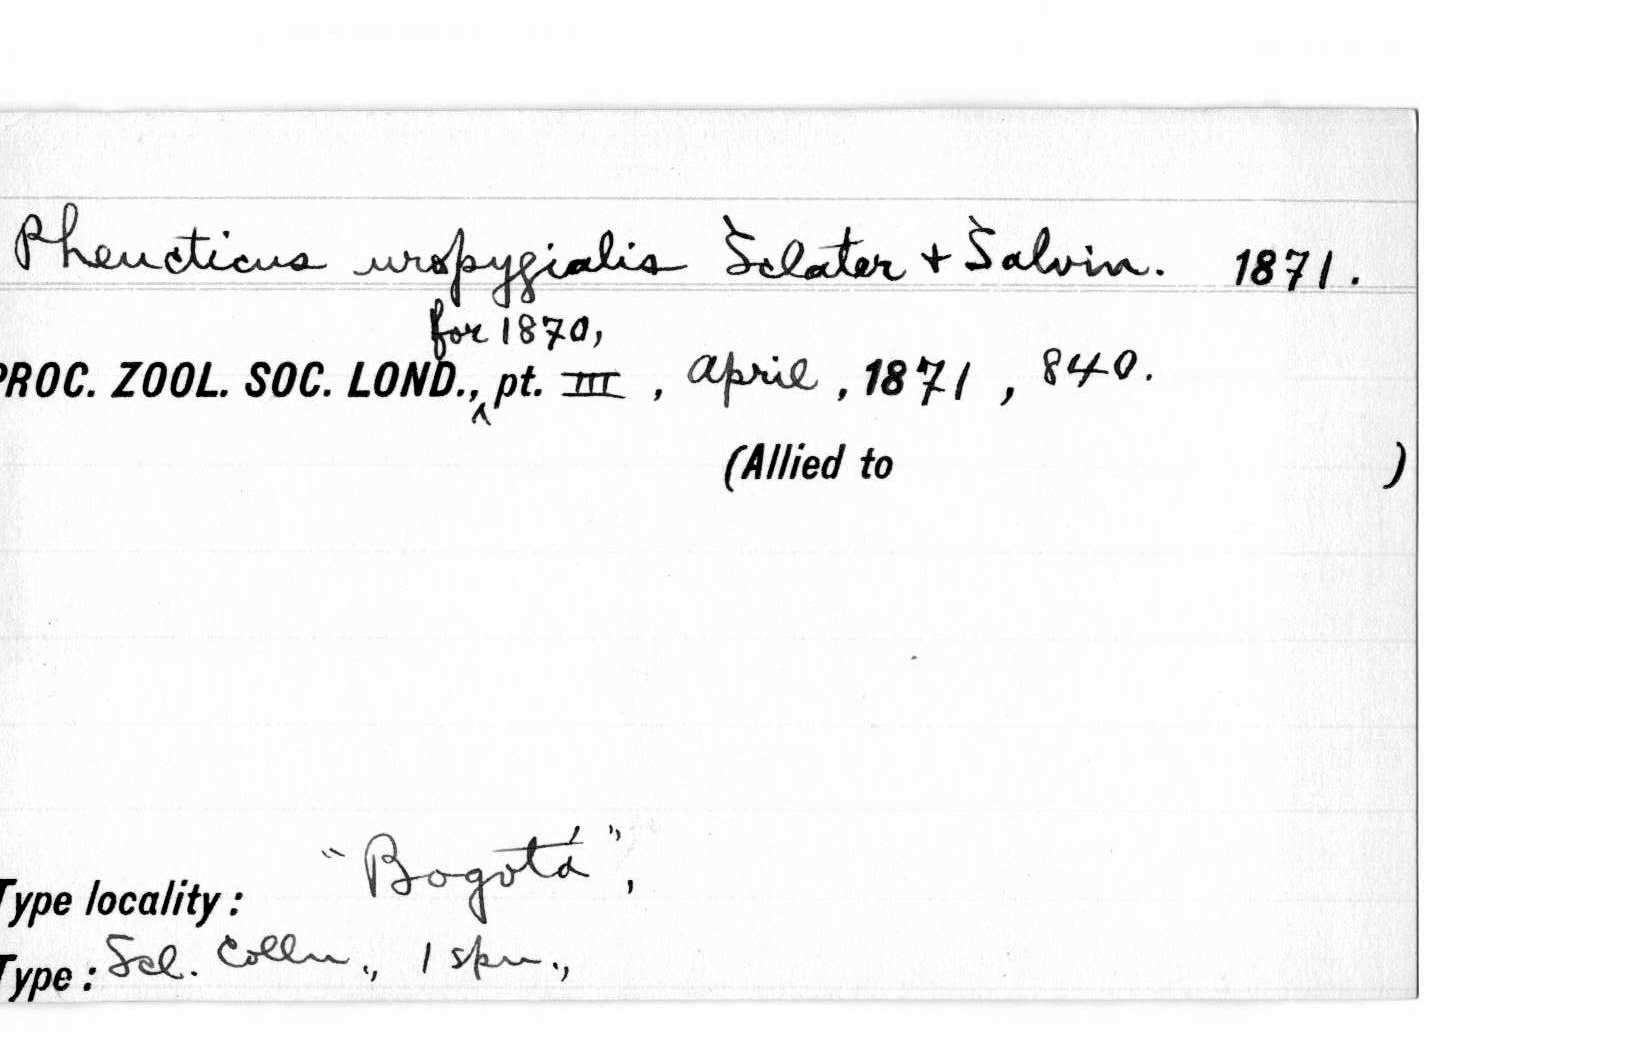 Pheucticus uropygialis Sclater + Salvin. 1871.
for 1870,
PROC. ZOOL. SOC. LOND., ^ pt. III, April, 1871, 840.
(Allied to )
Type locality: "Bogotá",
Type: Scl. Colln., 1 spn.,